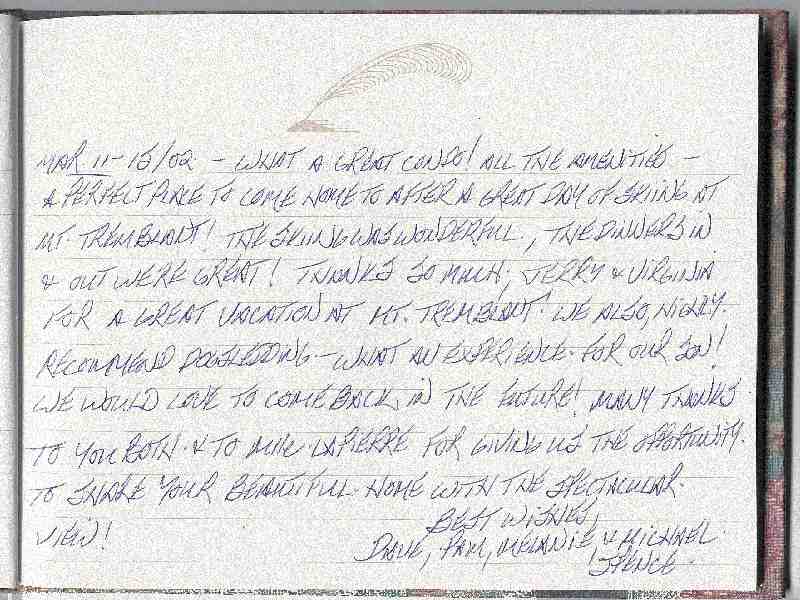 MAR 11-15/02 - WHAT A GREAT CONDO! ALL THE AMENITIES -
A PERFECT PLACE TO COME HOME TO AFTER A GREAT DAY OF SKIING AT
MT. TREMBLANT! THE SKIING WAS WONDERFUL, THE DINNERS IN
& OUT WERE GREAT! THANKS SO MUCH, JERRY & VIRGINIA
FOR A GREAT VACATION AT MT. TREMBLANT! WE ALSO, HIGHLY
RECOMMEND DOGSLEDDING - WHAT AN EXPERIENCE FOR OUR SON!
WE WOULD LOVE TO COME BACK IN THE FUTURE! MANY THANKS
TO YOU BOTH & TO LAPIERRE FOR GIVING US THE OPPORTUNITY
TO SHARE YOUR BEAUTIFUL HOME WITH THE SPECTACULAR
VIEW!
BEST WISHES,
DAVE, PAM, MELANIE & MICHAEL
SPENCE